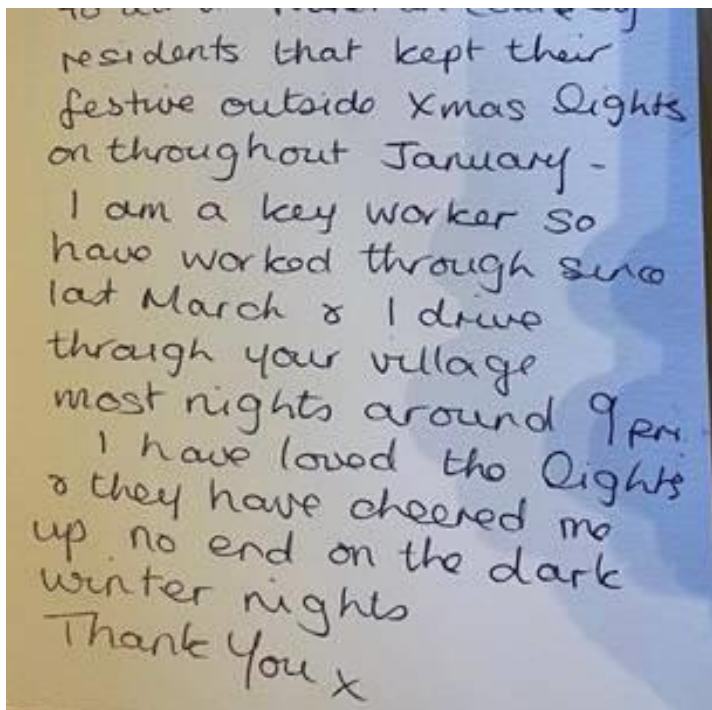 to all
residents that kept their
festive outside Xmas lights
on throughout January -
I am a key worker so
have worked through since
last March & I drive
through your village
most nights around 9pm.
I have loved the lights
& they have cheered me
up no end on the dark
winter nights
Thank You x